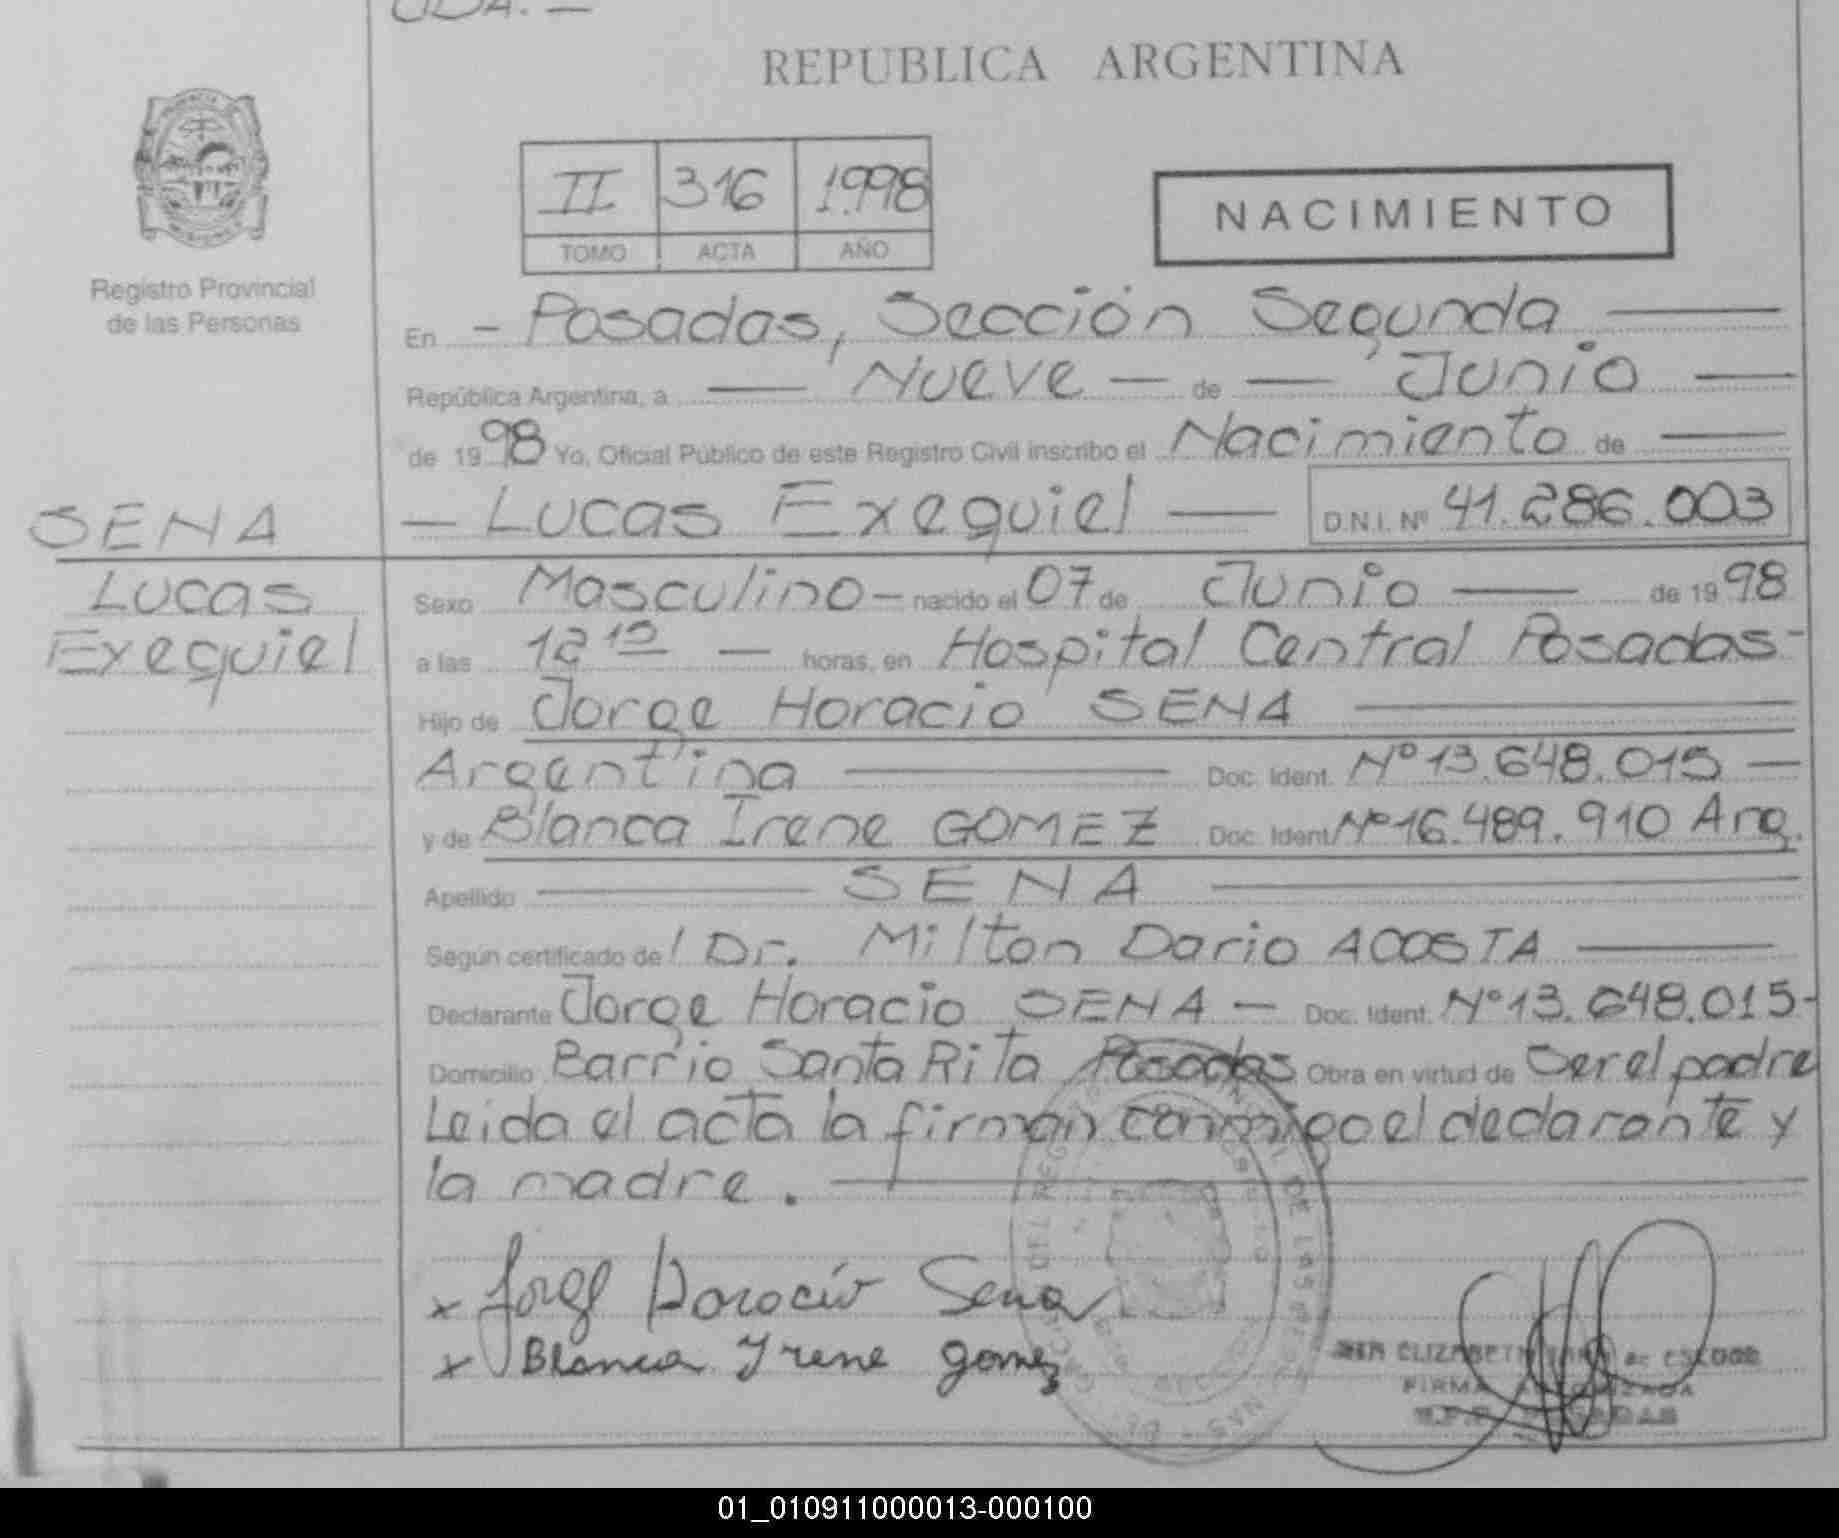 REPUBLICA ARGENTINA
II 316 1.998
TOMO ACTA AÑO
NACIMIENTO
Registro Provincial
de las Personas
En - Posadas, Sección Segunda
República Argentina, a Nueve - de - Junio
de 1998 Yo, Oficial Público de este Registro Civil inscribo el Nacimiento de
- Lucas Exequiel - D.N.I. Nº 41.286.003
SENA
Lucas
Exequiel
Sexo Masculino - nacido el 07 de Junio de 1998
a las 12 15 - horas, en Hospital Central Posadas-
Hijo de Jorge Horacio SENA
Argentina Doc. Ident. Nº 13.648.015 -
y de Blanca Irene GOMEZ Doc. Ident. Nº 16.489.910 Arg.
Apellido SENA
Según certificado del Dr. Milton Dario ACOSTA
Declarante Jorge Horacio SENA - Doc. Ident. Nº 13.648.015-
Domicilio Barrio Santa Rita Posadas Obra en virtud de Ser el padre
Leida el acta la firman conmigo el declarante y
la madre.
x Jorge Horacio Sena
x Blanca Irene Gomez
ELIZABETH
FIRMA AUTORIZADA
01_010911000013-000100